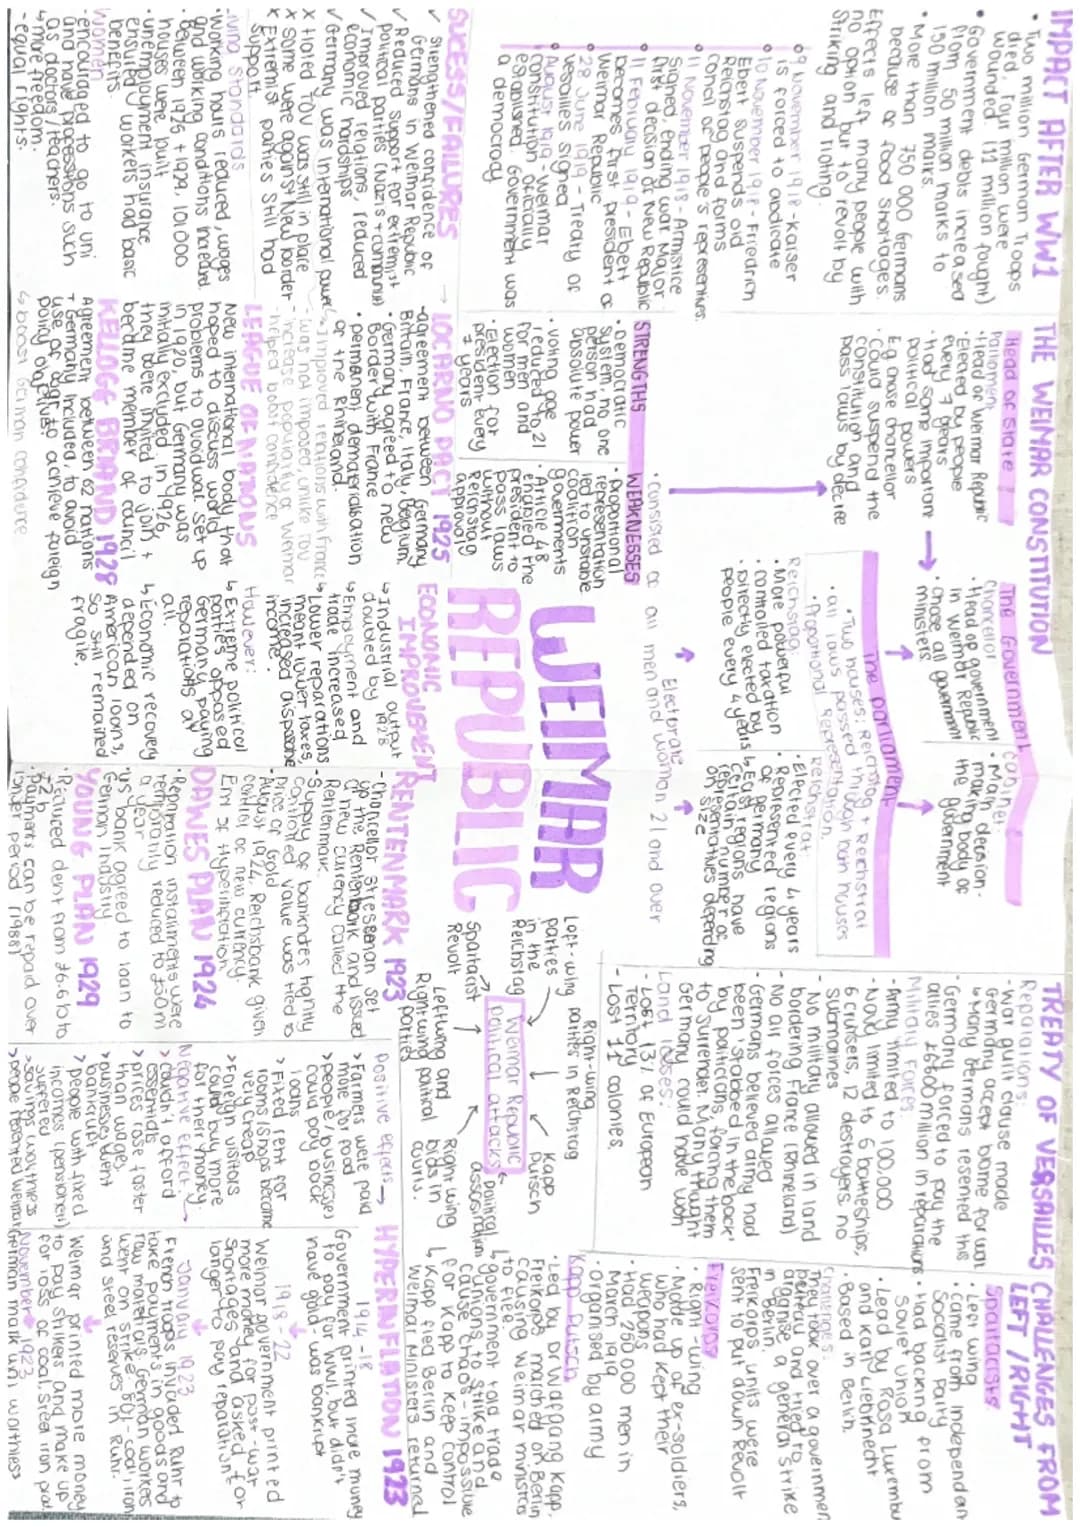 IMPACT AFTER WW1
• Two million German Troops
died. Four million were
wounded. (11 million fought)
• Government debts increased
from 50 million marks to
150 million marks.
• More than 750 000 Germans
because of food shortages.
Effects left many people with
no option but to revolt by
striking and rioting.
9 November 1918 - Kaiser
is forced to abdicate
10 November 1918 - Friedrich
Ebert suspends old
Reichstag and forms
11 November 1918 - Armistice
signed, ending war. Major
first decision of New Republic
11 February 1919 - Ebert
becomes first president of
Weimar Republic
28 June 1919 - Treaty of
versailles signed
August 1919 - Weimar
constitution officially
established. Government was
a democracy
THE WEIMAR CONSTITUTION
Head of State
Parliament
• Head of Weimar Republic
• Elected by people
every 7 years
• Had some important
political powers
E.g chose chancellor
• Could suspend the
constitution and
pass laws by decree
The Government
Chancellor
• Head of government
in Weimar Republic
• chose all government
ministers.
Cabinet
• Main decision-
making body of
the government
The parliament
• Two houses: Reichstag + Reichstrat
• all laws passed through both houses
• Proportional Representation.
Reichstag:
• More powerful
• controlled taxation
• directly elected by
people every 4 years
Reichstrat:
• Elected every 4 years
• Represented regions
of Germany
↳ Each regions have
certain number of
representatives depending
on size
Electorate
• Consisted of all men and women 21 and over
STRENGTHS
• Democratic
system, no one
person had
absolute power
• voting age
reduced to 21
for men and
women
• Election for
president every
7 years
WEAKNESSES
• proportional
representation
led to unstable
coalition
governments
• Article 48
enabled the
president to
pass laws
without
Reichstag
approval
WEIMAR
REPUBLIC
TREATY OF VERSAILLES
Reparations:
- War guilt clause made
Germany accept blame for war
↳ Many Germans resented this
- Germany forced to pay the
allies £6600 million in reparations
Military Forces:
- Army limited to 100,000
- Naval limited to 6 battleships,
6 cruisers, 12 destroyers, no
submarines
- No military allowed in land
bordering France (Rhineland)
- No air forces allowed
Germans believed army had
been 'stabbed in the back'
by politicans, forcing them
to surrender. Many thought
Germany could have won
Land losses:
- Lost 13% of European
Territory
- Lost 11 colonies.
CHALLENGES FROM
LEFT/RIGHT
Spartacists
• Left wing
• Came from Independent
Socialist Party
• Had backing from
Soviet Union
• Lead by Rosa Luxemburg
and Karl Liebknecht
• Based in Berlin.
Challenge:
They took over a government
building and tried to
organise a general strike
in Berlin.
Freikorps units were
sent to put down Revolt
Freikorps
• Right-wing
• Made up of ex-soldiers,
who had kept their
weapons
• Had 250 000 men in
March 1919
• Organised by army
Kapp Putsch
• Led by Dr Wolfgang Kapp,
Freikorps marched on Berlin
causing Weimar ministers
to flee
↳ government told trade
unions to strike and
cause chaos - impossible
for Kapp to keep control
↳ Kapp fled Berlin and
Weimar Ministers returned
Weimar Republic
political attacks
Left-wing
parties
in the
Reichstag
Right-wing
parties in Reichstag
Kapp
Putsch
Political
assasinations
Right wing
bias in
courts.
Left wing and
Right wing political
parties
Spartacist
Revolt
SUCESS/FAILURES
✓ strengthened confidence of
Germans in Weimar Republic
✓ Reduced support for extremist
political parties (Nazis + communist)
✓ Improved relations, reduced
economic hardships
✓ Germany was international power
x Hated TOV was still in place
x Some were against New border
x Extremist parties still had
support
Living standards
• Working hours reduced, wages
and working conditions increased.
• Between 1925 + 1929, 101000
houses were built
• unemployment insurance
ensured workers had basic
benefits.
Women
• encouraged to go to uni
and have professions such
as doctors/teachers.
↳ more freedom
- equal rights.
→ LOCARNO PACT 1925
- agreement between Germany
Britain, France, Italy, Belgium.
• Germany agreed to new
Border with France
• permanent demilitarisation
of the Rhineland.
↳ Improved relations with France
- was not imposed, unlike TOV
- increase popularity of Weimar
- helped boost confidence
LEAGUE OF NATIONS
New international body that
hoped to discuss world
problems to avoid war. Set up
in 1920, but Germany was
initially excluded. In 1926,
they were invited to join +
became member of council
KELLOGG BRIAND 1928
Agreement between 62 nations
+ Germany included, to avoid
use of war to achieve foreign
policy objectives.
↳ boost German confidence
ECONOMIC
IMPROVEMENT
↳ Industrial output
doubled by 1928
↳ Employment and
trade increased
↳ Lower reparations
meant lower taxes,
increased disposable
income.
However:
↳ Extreme political
parties opposed
Germany paying
reparations at
all.
↳ Economic recovery
depended on
American loans,
so still remained
fragile.
RENTENMARK 1923
- Chancellor Stresseman set
up the Rentenbank and issued
a new currency called the
Rentenmark.
- Supply of banknotes tightly
controlled value was tied to
price of Gold
August 1924, Reichsbank given
control of new currency.
End of Hyperinflation
DAWES PLAN 1924
• Reparation installments were
temporarily reduced to £50m
a year
• US bank agreed to loan to
German Industry
YOUNG PLAN 1929
• Reduced debt from £6.6b to
£2b.
• Payments can be repaid over
longer period (1988)
Positive effects →
> Farmers were paid
more for food
> people/businesses
could pay back
loans
> Fixed rent for
rooms/shops became
very cheap
> Foreign visitors
could buy more
for their money.
Negative Effect
> couldn't afford
essentials
> prices rose faster
than wages.
> businesses went
bankrupt
> people with fixed
incomes (pensioners)
suffered
> savings worthless
> people resented Weimar
HYPERINFLATION 1923
1914-18
Government printed more money
to pay for WWI, but didn't
have gold - was bankrupt
1918-22
Weimar government printed
more money for post-war
shortages and asked for
longer to pay reparations
January 1923
French troops invaded Ruhr to
take payments in goods and
raw materials. German workers
went on strike. 80% coal, iron
and steel reserves in Ruhr.
Weimar printed more money
to pay strikers and make up
for loss of coal, steel iron
November 1923
German mark worthless